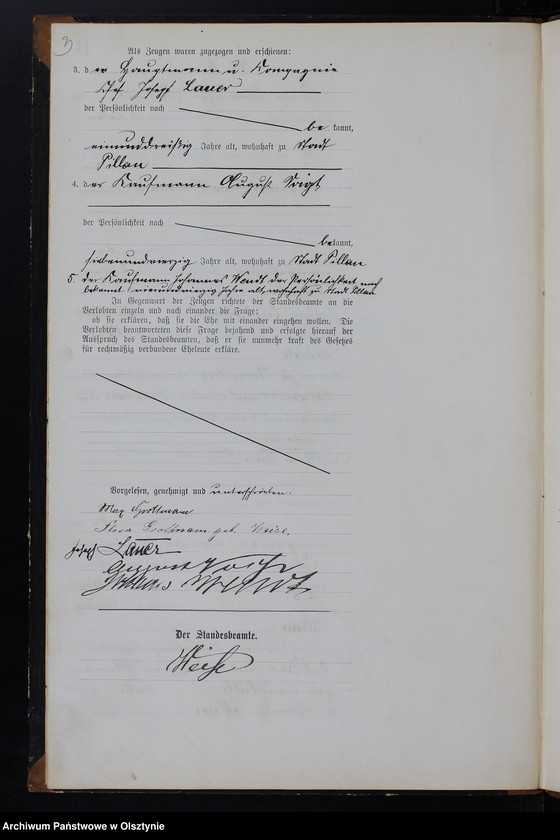 3
Als Zeugen waren zugezogen und erschienen:
3. der Hauptmann u. Kompagnie
Chef Joseph Lauer
der Persönlichkeit nach
be kannt,
einunddreißig Jahre alt, wohnhaft zu Stadt
Pillau
4. der Kaufmann August Voigt
der Persönlichkeit nach
bekannt,
siebenundvierzig Jahre alt, wohnhaft zu Stadt Pillau
5. der Kaufmann Johannes Wendt der Persönlichkeit nach
bekannt, vierundvierzig Jahre alt, wohnhaft zu Stadt Pillau
In Gegenwart der Zeugen richtete der Standesbeamte an die
Verlobten einzeln und nach einander die Frage:
ob sie erklären, daß sie die Ehe mit einander eingehen wollen. Die
Verlobten beantworteten diese Frage bejahend und erfolgte hierauf der
Ausspruch des Standesbeamten, daß er sie nunmehr kraft des Gesetzes
für rechtmäßig verbundene Eheleute erkläre.
Vorgelesen, genehmigt und unterschrieben.
Max Grottmann
geb. Weise.
Joseph Lauer
August Voigt
Johannes Wendt
Der Standesbeamte.
Weise
Archiwum Państwowe w Olsztynie